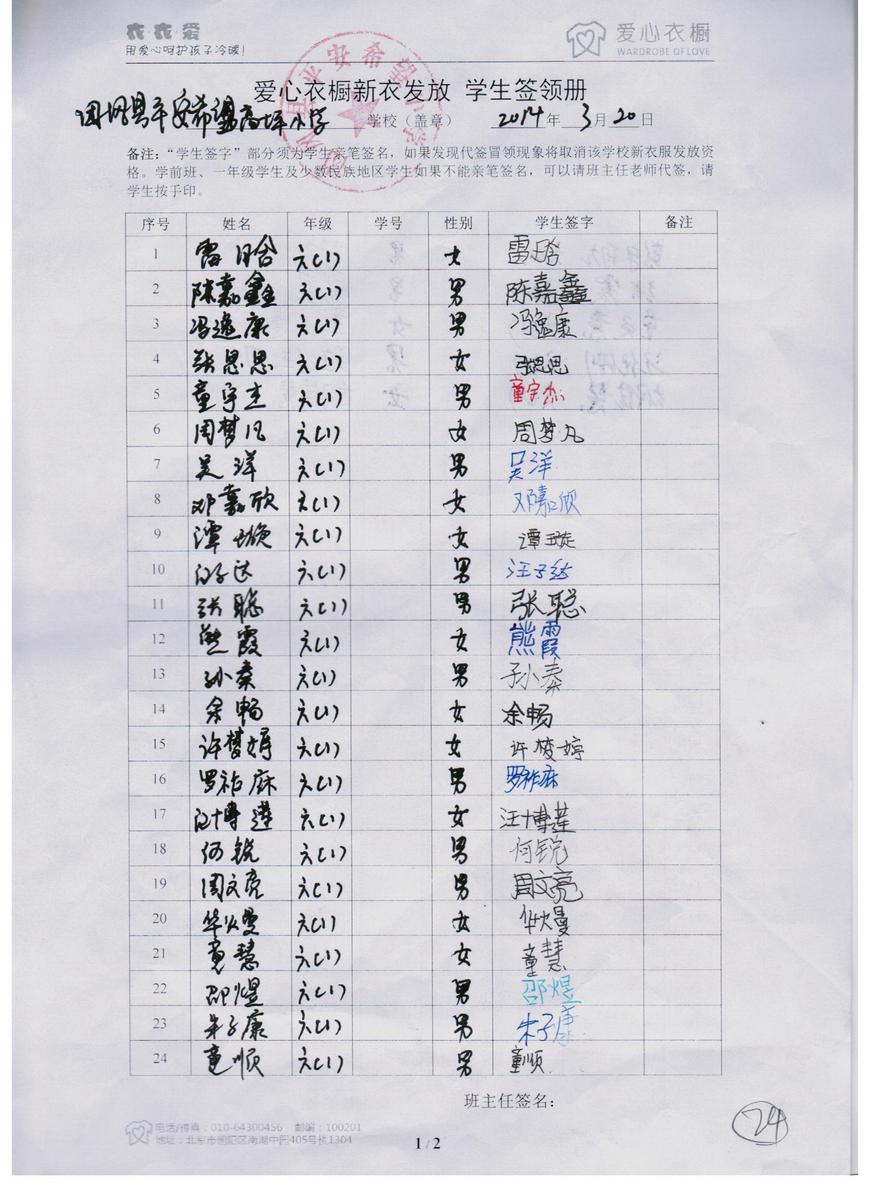 衣·衣·爱
用爱心呵护孩子冷暖!
爱心衣橱
WARDROBE OF LOVE
爱心衣橱新衣发放 学生签领册
平安希望高坪小学 学校（盖章） 2014年 3月20日
备注：“学生签字”部分须为学生亲笔签名，如果发现代签冒领现象将取消该学校新衣服发放资
格。学前班、一年级学生及少数民族地区学生如果不能亲笔签名，可以请班主任老师代签，请
学生按手印。
序号 姓名 年级 学号 性别 学生签字 备注
1 雷 六(1) 女 雷
2 陈嘉鑫 六(1) 男 陈嘉鑫
3 冯逸康 六(1) 男 冯逸康
4 张思思 六(1) 女 张思思
5 童宇杰 六(1) 男 童宇杰
6 周梦凡 六(1) 女 周梦凡
7 吴洋 六(1) 男 吴洋
8 邓嘉欣 六(1) 女 邓嘉欣
9 谭璇 六(1) 女 谭璇
10 汪子达 六(1) 男 汪子达
11 张聪 六(1) 男 张聪
12 熊霞 六(1) 女 熊霞
13 孙秦 六(1) 男 孙秦
14 余畅 六(1) 女 余畅
15 许梦婷 六(1) 女 许梦婷
16 罗祚麻 六(1) 男 罗祚麻
17 汪博莲 六(1) 女 汪博莲
18 何锐 六(1) 男 何锐
19 周文亮 六(1) 男 周文亮
20 华 六(1) 女 华
21 童慧 六(1) 女 童慧
22 邵煜 六(1) 男 邵煜
23 朱子康 六(1) 男 朱子康
24 童顺 六(1) 男 童顺
班主任签名：
24
电话/传真：010-64300456 邮编：100201
地址：北京市朝阳区南湖中园405号楼1304
1 / 2